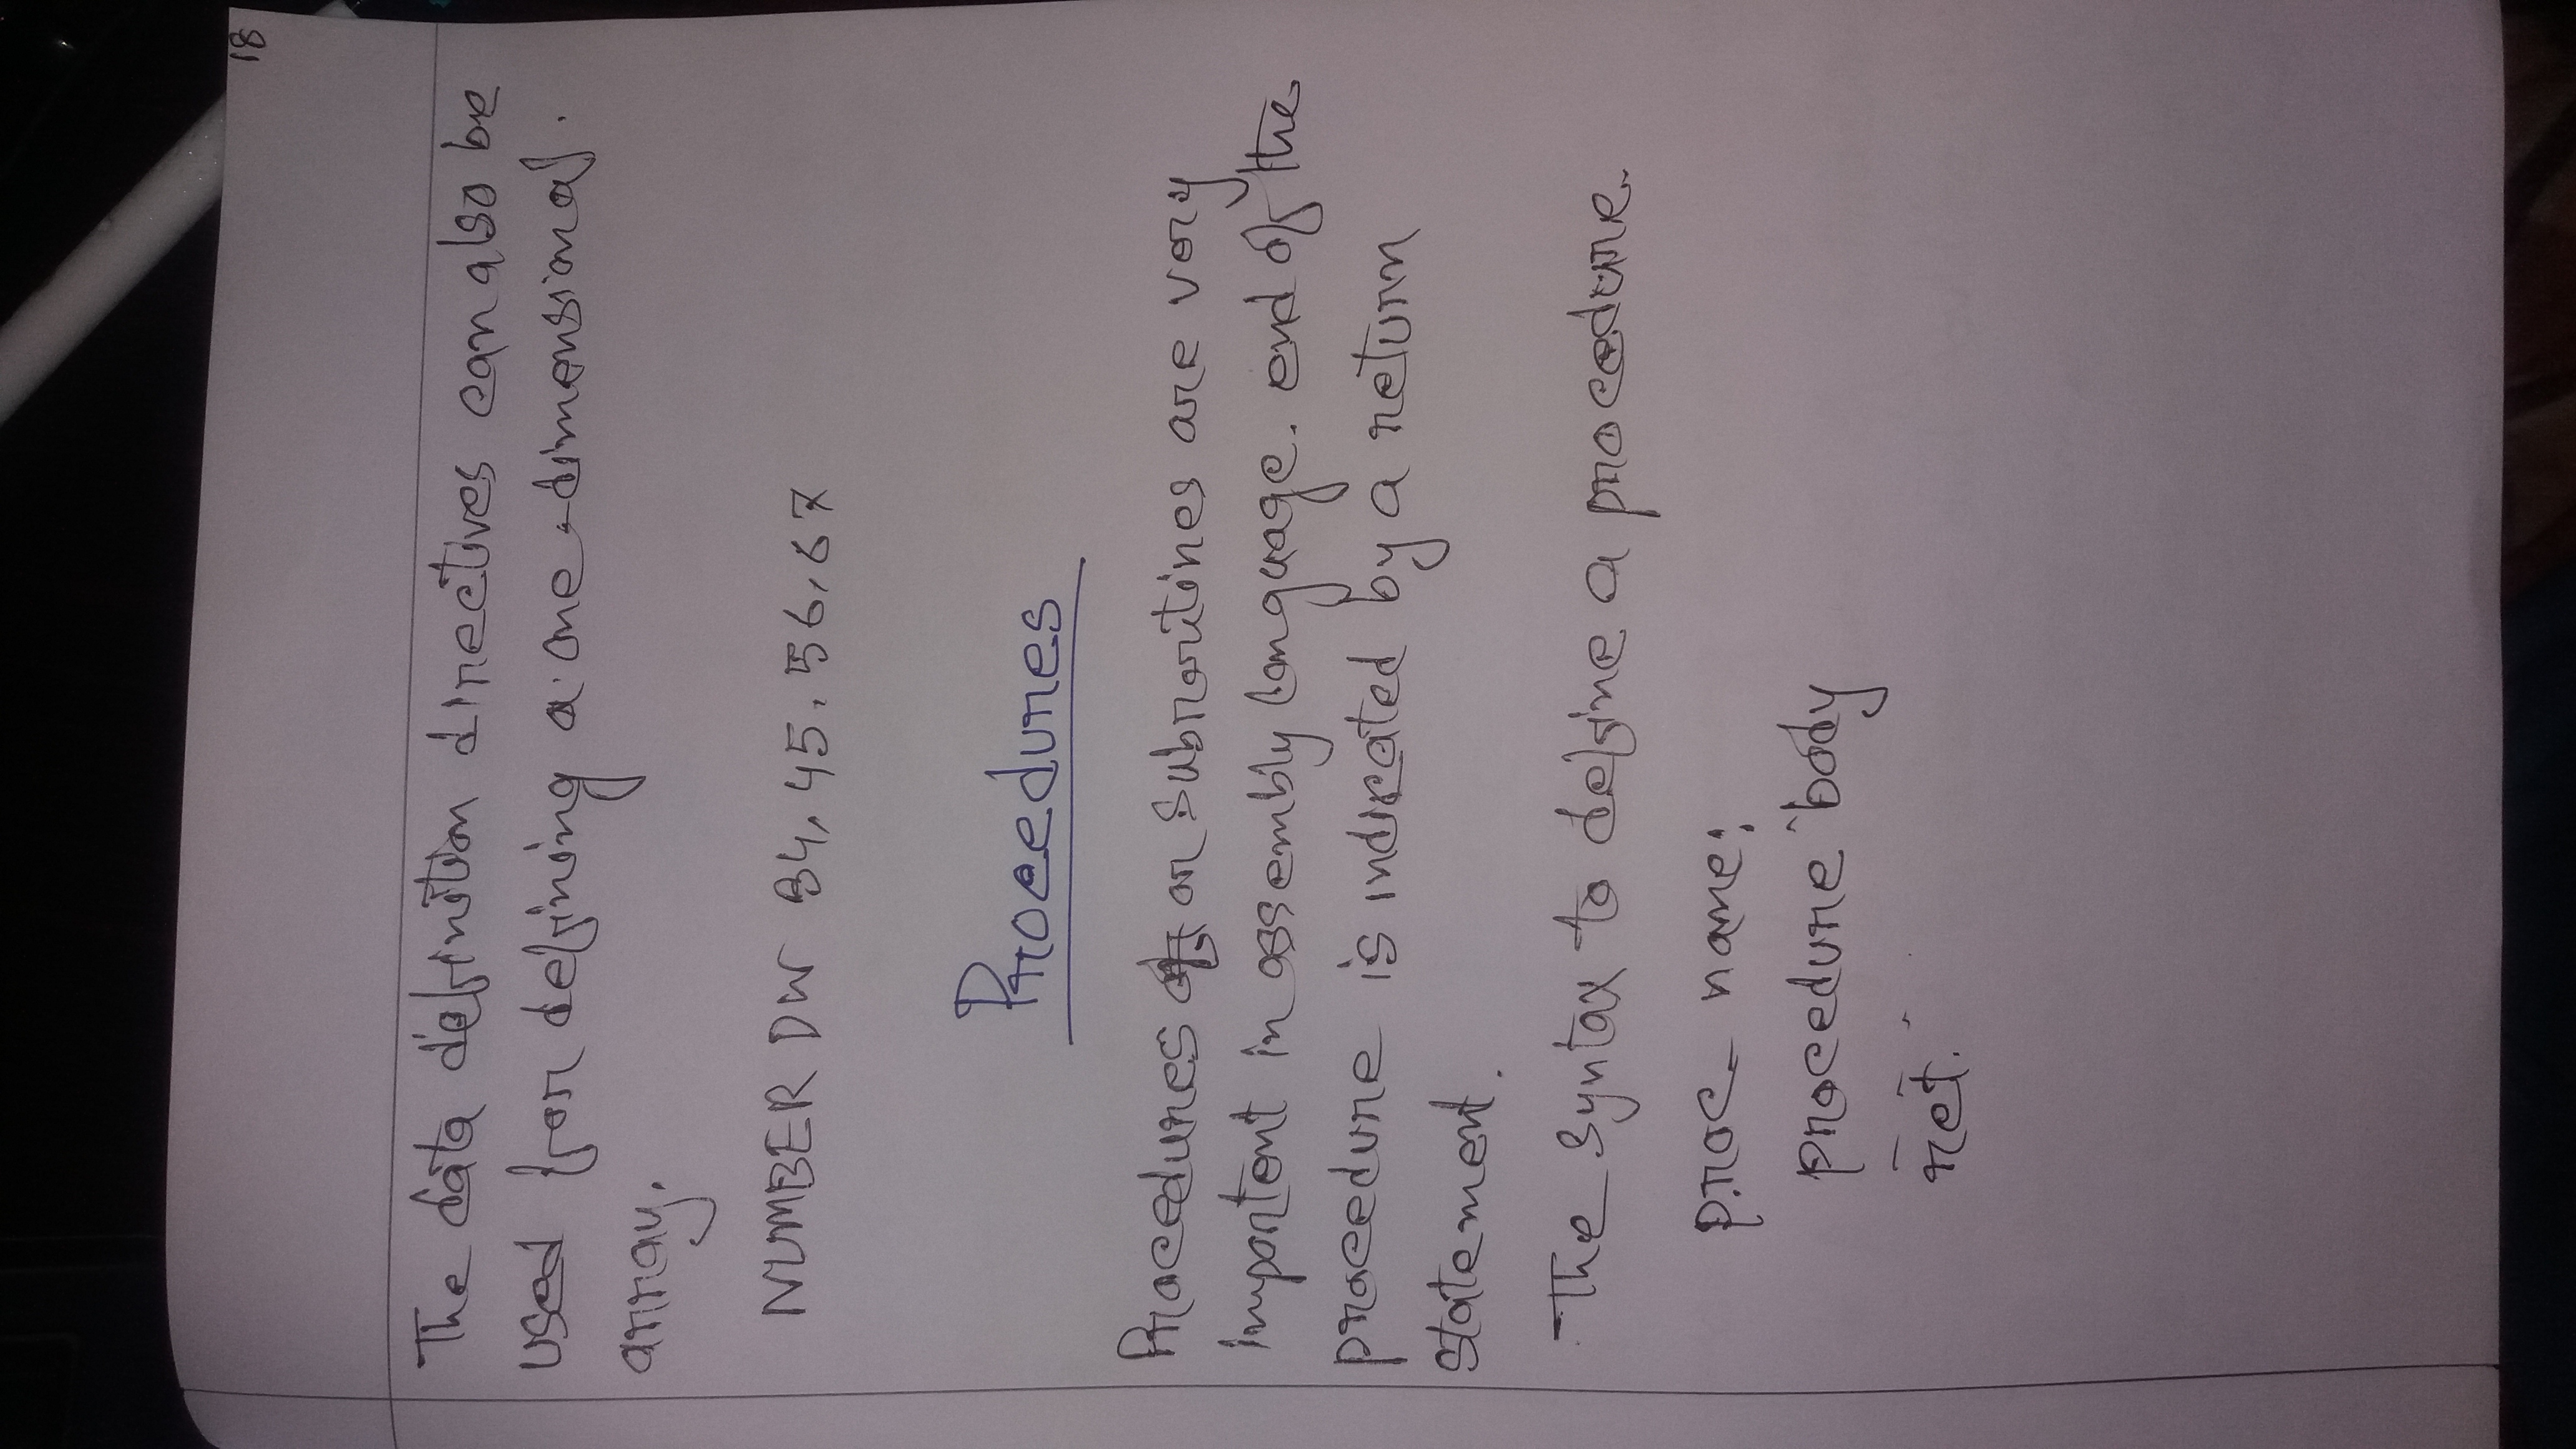 18
The data definition directives can also be
used for defining a one-dimensional
array.
NUMBER DW 34, 45, 56, 67
Procedures
Procedures or subroutines are very
importent in assembly language. end of the
procedure is indicated by a return
statement.
The syntax to define a procedure
proc name:
procedure body
ret.